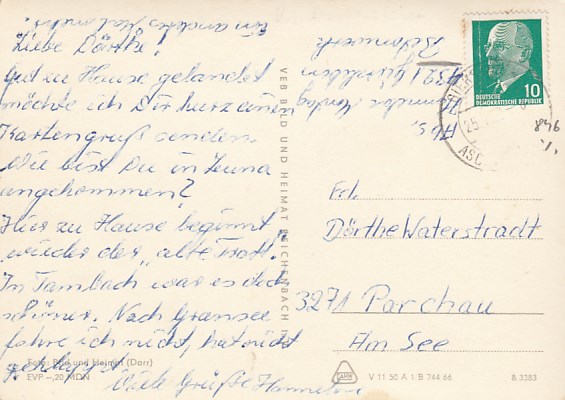 Liebe Dörthe!
Gut zu Hause gelandet
möchte ich Dir kurz einen
Kartengruß senden.
Wie bist Du in Leuna
angekommen?
Hier zu Hause beginnt
wieder der „alte Trott".
In Tambach war es doch
schöner. Nach Gransee
fahre ich nicht, hat nicht
geklappt.
Viele Grüße Hannelore
Ein andches Mal mehr.
Abs.
4321
Foto: Bild und Heimat (Darr)
EVP –,20 MDN
VEB BILD UND HEIMAT REICHENBACH I. V.
10
DEUTSCHE
DEMOKRATISCHE REPUBLIK
25
ASC
846
Frl.
Dörthe Waterstradt
3271 Parchau
Am See
V 11 50 A 1 B 744 66
B 3383